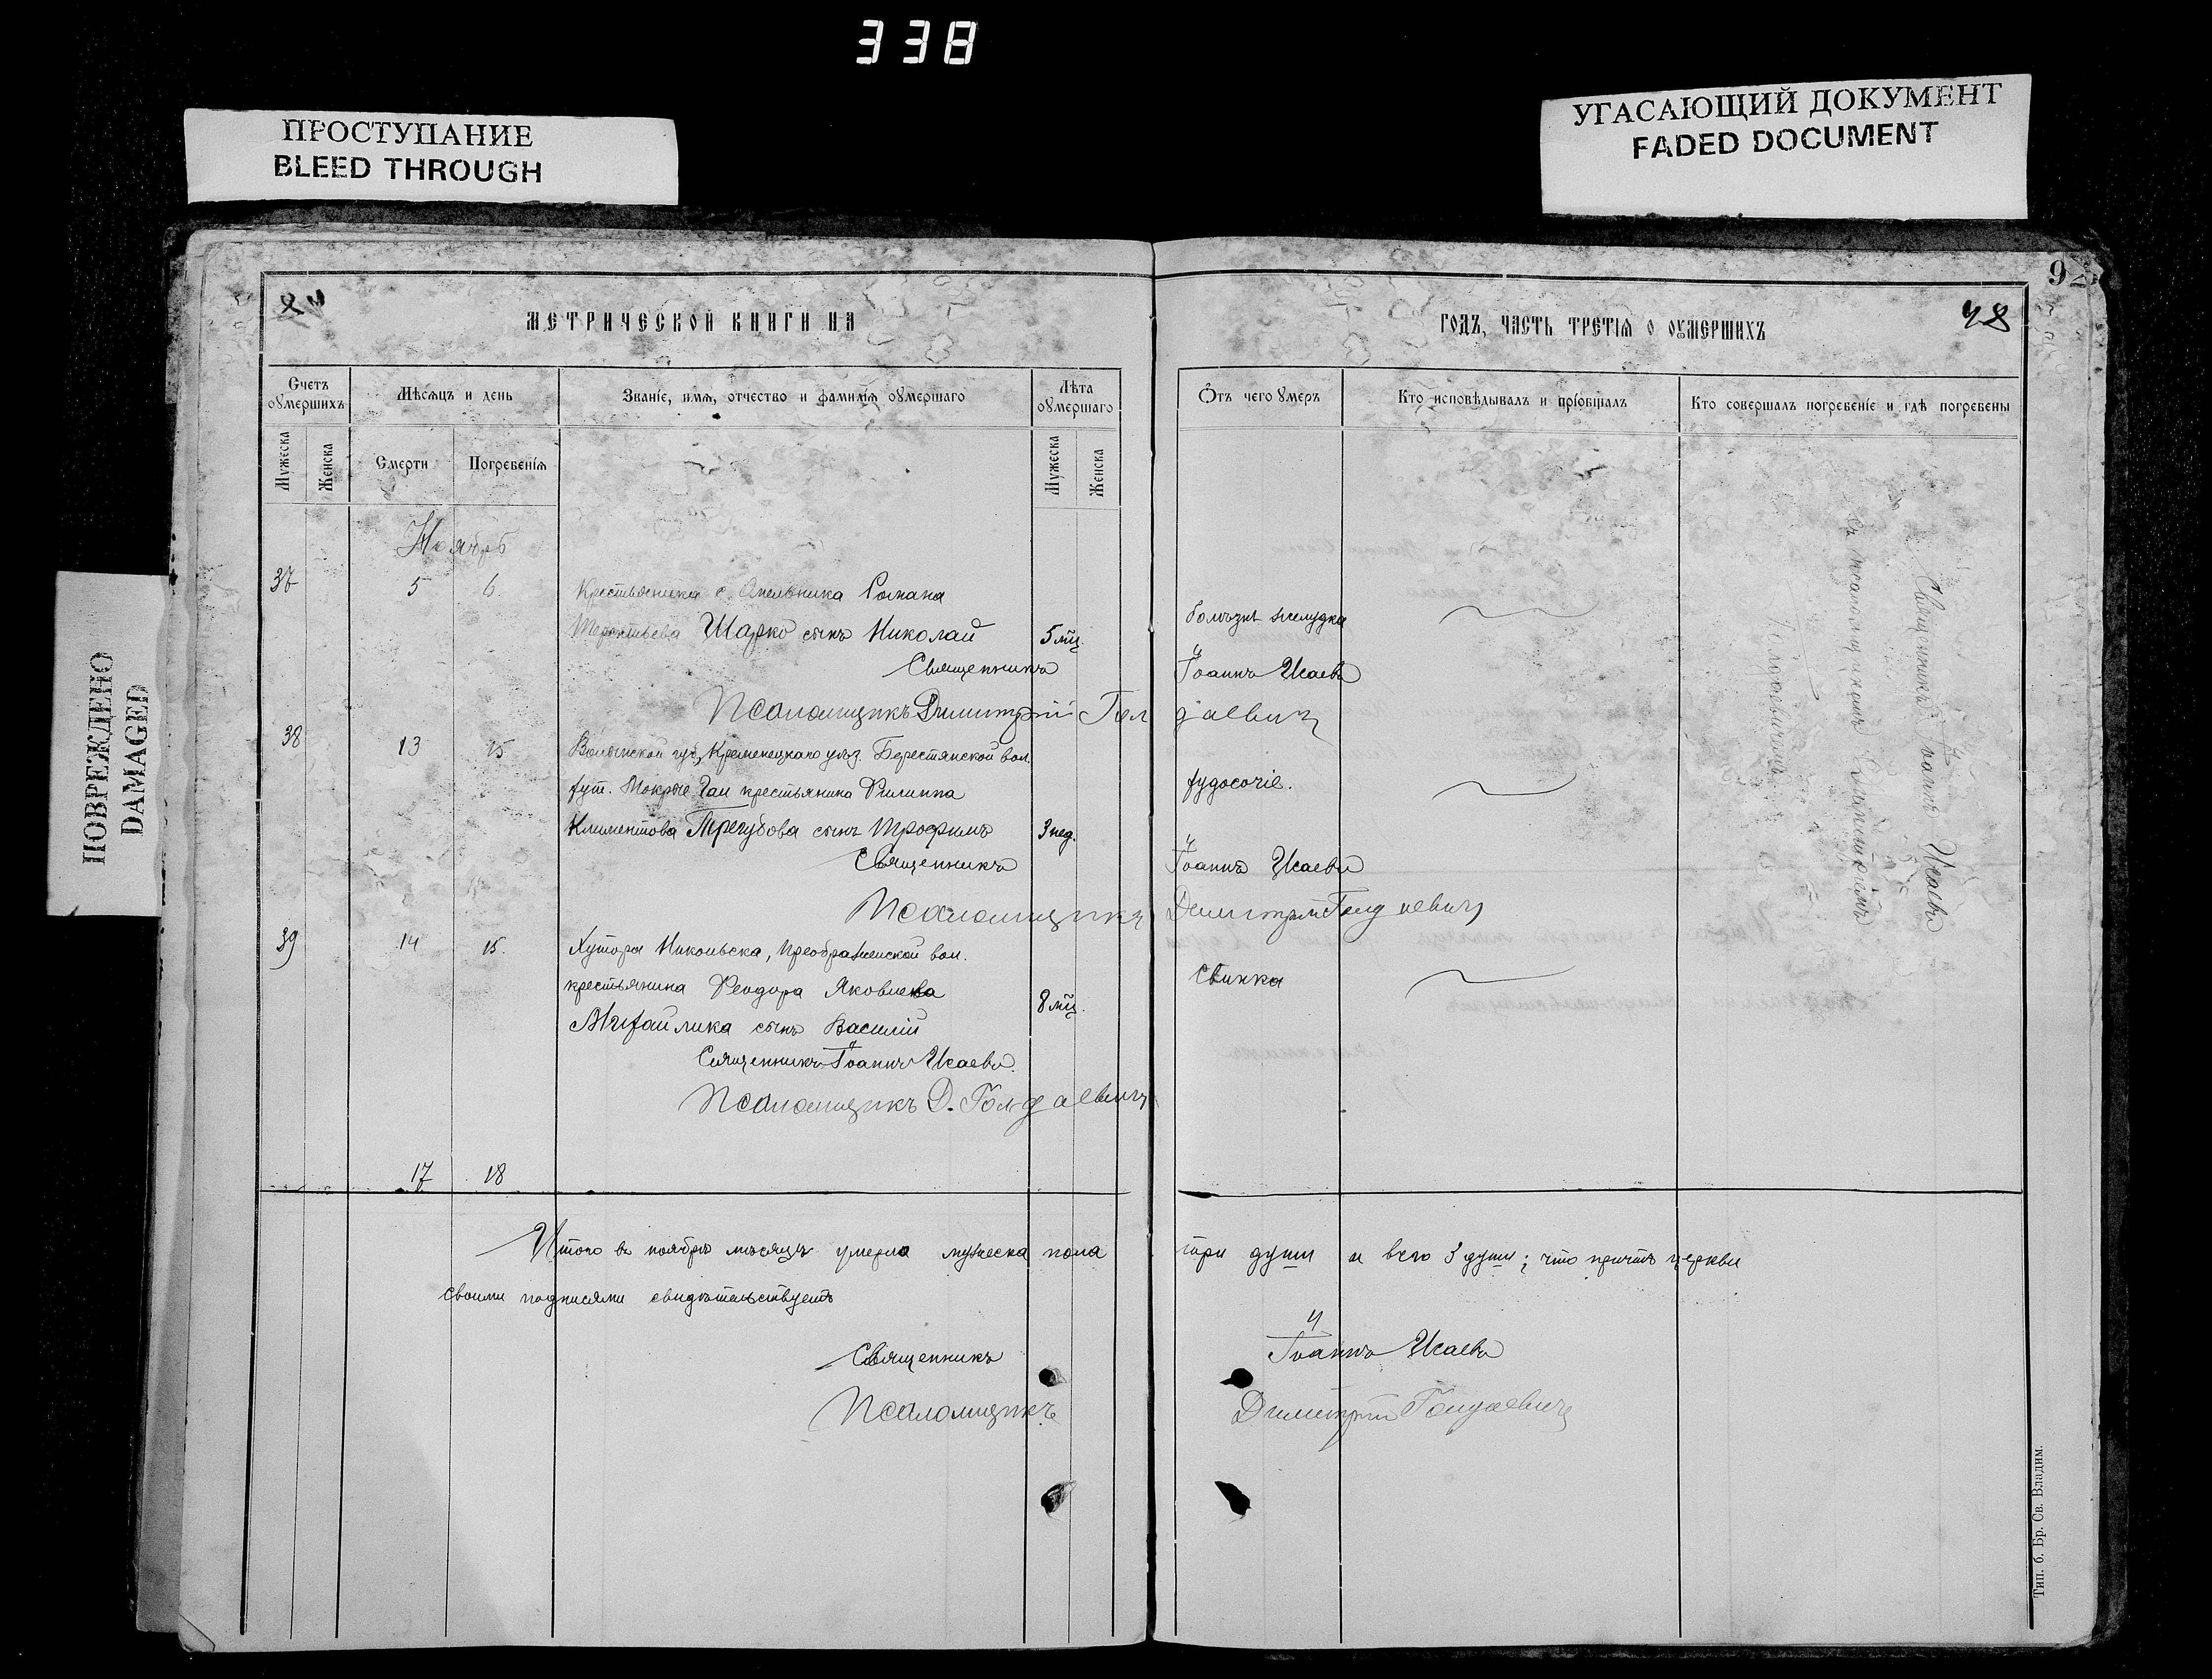 338
ПРОСТУПАНИЕ
BLEED THROUGH
УГАСАЮЩИЙ ДОКУМЕНТ
FADED DOCUMENT
ПОВРЕЖДЕНО
DAMAGED
92
48
МЕТРИЧЕСКОЙ КНИГИ НА
ГОДЪ, ЧАСТЬ ТРЕТІЯ О ОУМЕРШИХЪ
Счетъ оумершихъ
Мѣсяцъ и день
Званіе, имя, отчество и фамилія оумершаго
Лѣта оумершаго
Отъ чего умеръ
Кто исповѣдывалъ и пріобщалъ
Кто совершалъ погребеніе и гдѣ погребены
Мужеска
Женска
Смерти
Погребенія
Мужеска
Женска
Ноябрь
37 5 6. Крестьянина с. Омельника Романа
Терентьева Шарко сынъ Николай 5 мц. болѣзнь желудка
Священникъ Іоаннъ Исаевъ
Псаломщикъ Димитрій Голдаевичъ
38 13 15 Волынской губ, Кременецкаго уѣз. Берестянской вол.
хут. Мокрые Гаи крестьянина Филиппа худосочіе.
Климентова Трегубова сынъ Трофимъ 3 нед.
Священникъ Іоаннъ Исаевъ
Псаломщикъ Димитрій Голдаевичъ
39 14 15. Хутора Никольска, Преображенской вол.
крестьянина Ѳеодора Яковлева Свинка
Михайлика сынъ Василій 8 мц.
Священникъ Іоаннъ Исаевъ.
Псаломщикъ Д. Голдаевичъ
17 18
Священникъ Іоаннъ Исаевъ
съ псаломщикомъ
Итого въ ноябрѣ мѣсяцѣ умерло мужеска пола три души и всего 3 души; что причтъ церкви
своими подписями свидѣтельствуетъ
Священникъ Іоаннъ Исаевъ
Псаломщикъ Димитрій Голдаевичъ
Тип. б. Бр. Св. Владим.